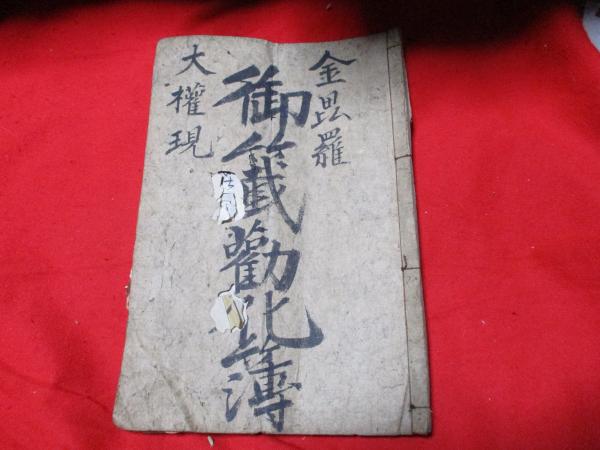 金毘羅
御籤勸化簿
大權現